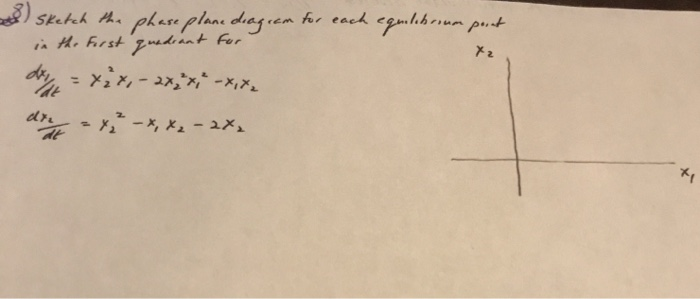 8) Sketch the phase plane diagram for each equilibrium point
in the first quadrant for
dx₁/dt = x₂²x₁ - 2x₂²x₁² - x₁x₂
dx₂/dt = x₂² - x₁x₂ - 2x₂
x₂
x₁